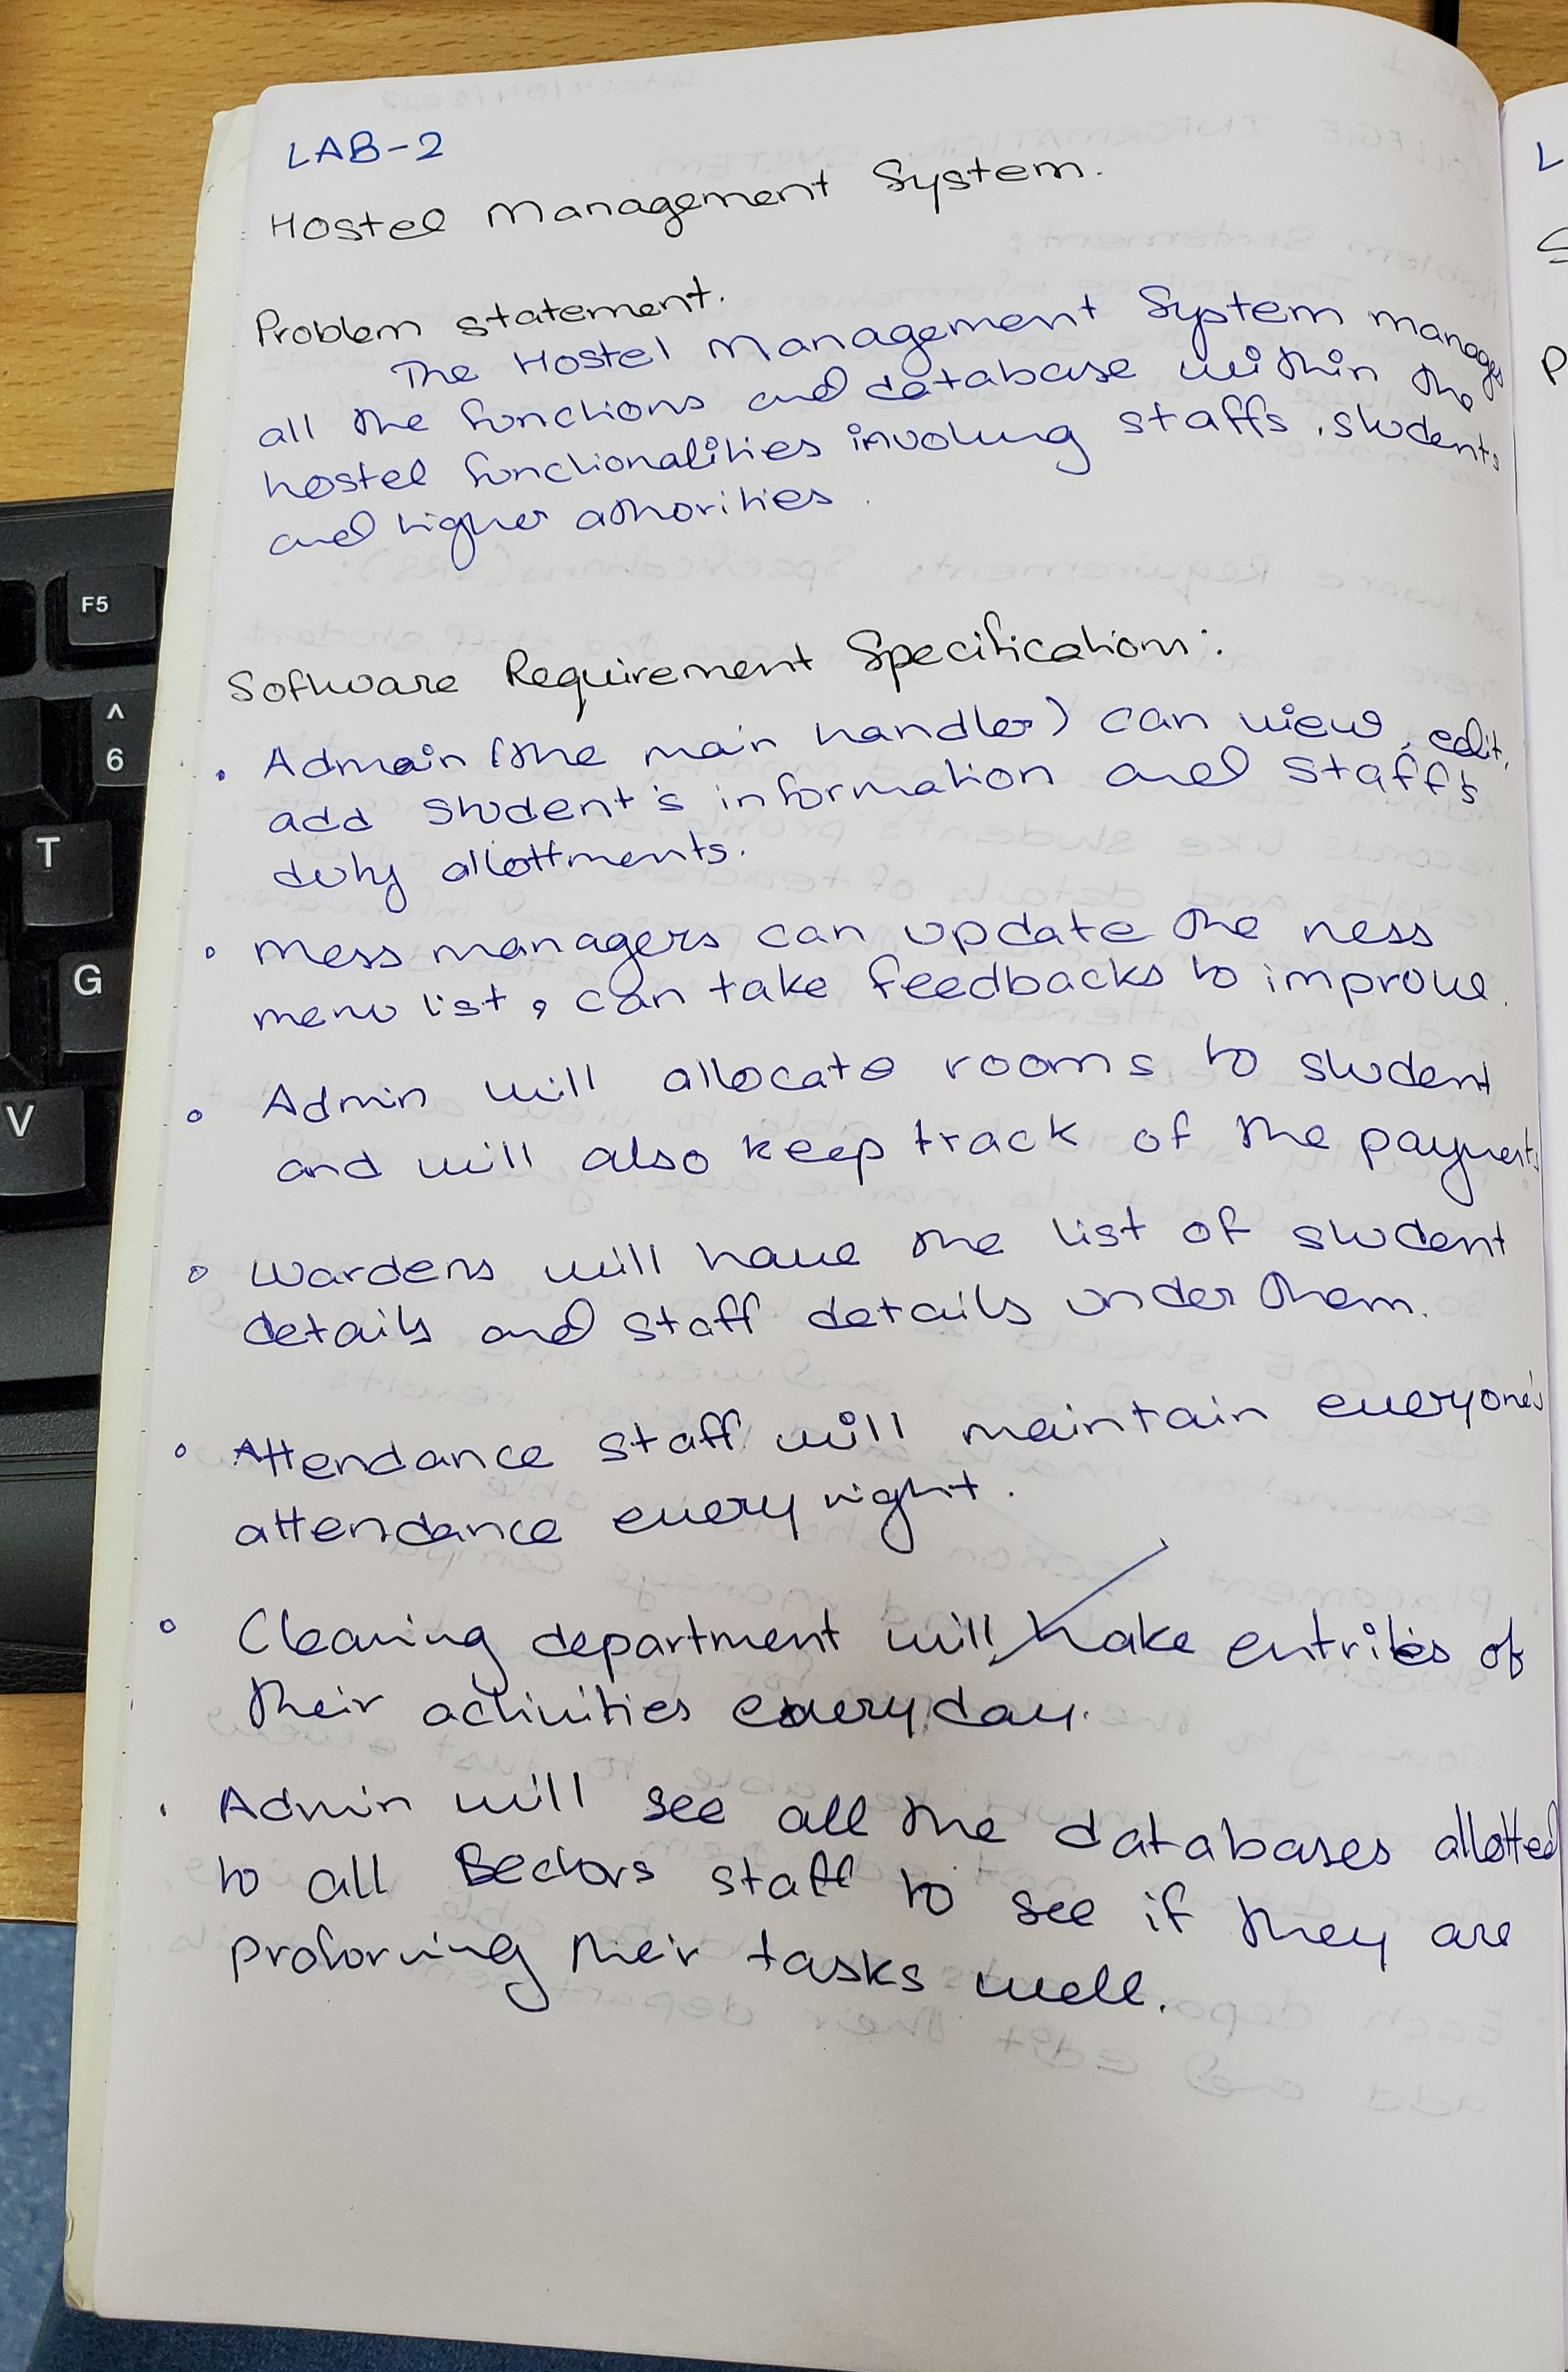 LAB-2
Hostel Management System.
Problem statement.
The Hostel Management System manages
all the functions and database within the
hostel functionalities involving staffs, students
and higher athorities.
Software Requirement Specifications:
• Admain (the main handler) can view, edit,
add student's information and staff's
duty allottments.
• Mess managers can update the ness
menu list, can take feedbacks to improve.
• Admin will allocate rooms to student
and will also keep track of the payments.
• Wardens will have the list of student
details and staff details under them.
• Attendance staff will maintain everyone's
attendance every night.
• Cleaning department will make entries of
their activities everyday.
• Admin will see all the databases allotted
to all Sectors staff to see if they are
proforming their tasks well.
F5
^
6
T
G
V
L
S
P